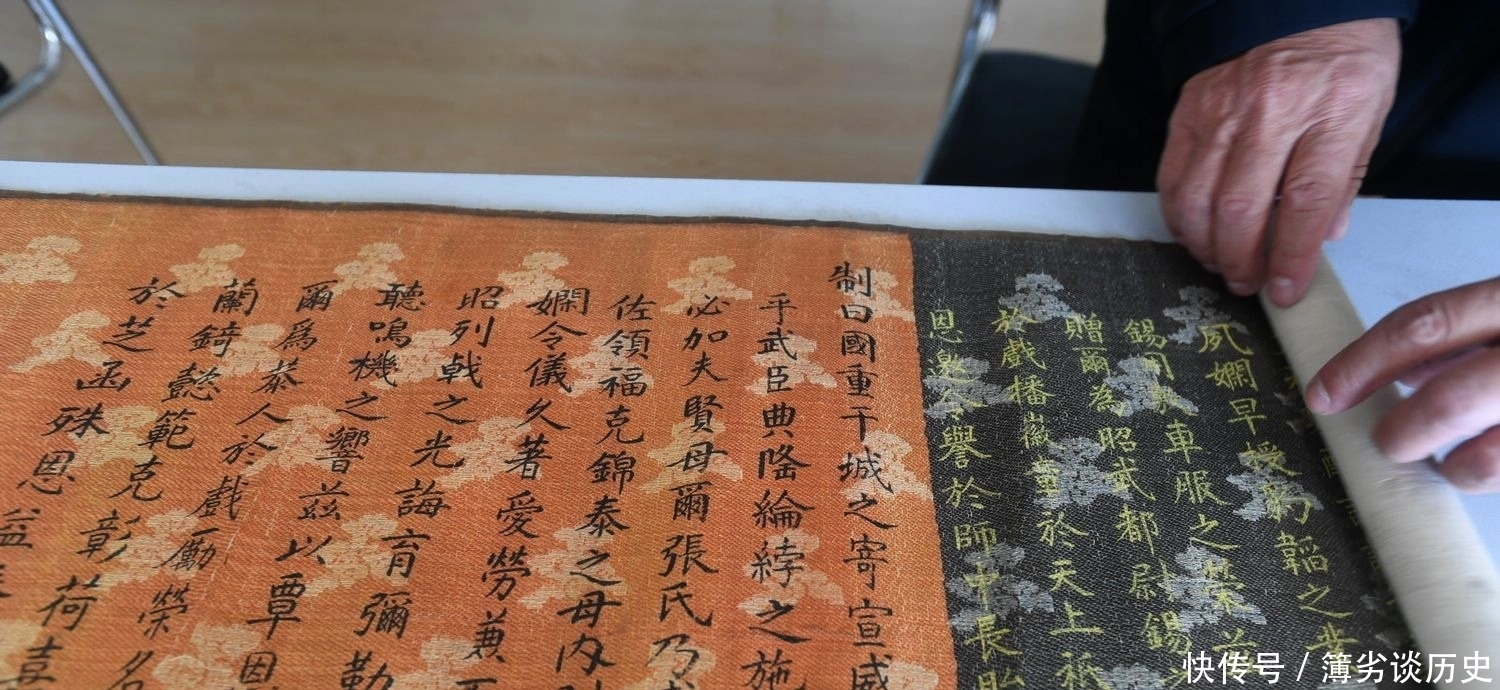 夙嫻早授豹韜之
錫用褒車服之榮茲
贈爾為昭武都尉錫
於戲播徽章於天上祇
恩邀令譽於師中長貽
制曰國重干城之寄宣威
乎武臣典隆綸綍之施
必加夫賢母爾張氏乃
佐領福克錦泰之母內
嫻令儀久著愛勞兼
昭列戟之光誨育彌勤
聽鳴機之響茲以覃恩
爾為恭人於戲勵榮名
蘭錡懿範克彰荷喜
於芝函殊恩益
快传号 / 簿劣谈历史